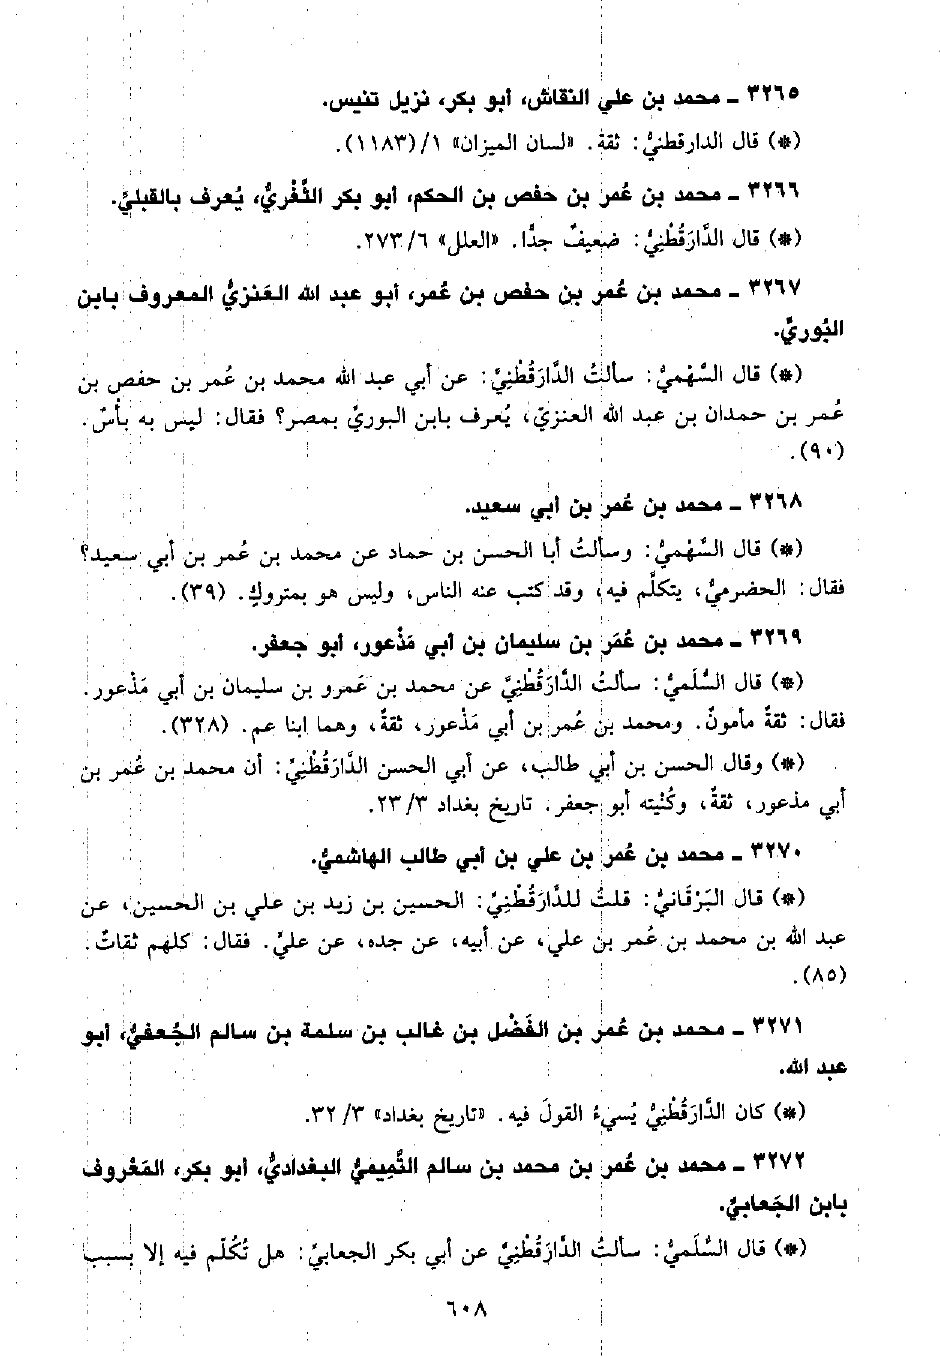 ٣٢٦٥ ـ محمد بن علي النقاش، أبو بكر، نزيل تنيس.
(*) قال الدارقطنيُّ: ثقة. «لسان الميزان» ١/(١١٨٣).
٣٢٦٦ ـ محمد بن عُمر بن حفص بن الحكم، أبو بكر الثَّغْريُّ، يُعرف بالقبليِّ.
(*) قال الدَّارَقُطْنِيُّ: ضعيفٌ جدًّا. «العلل» ٦/ ٢٧٣.
٣٢٦٧ ـ محمد بن عُمر بن حفص بن عُمر، أبو عبد الله العَنَزيُّ المعروف بابن
البُوريِّ.
(*) قال السَّهْميُّ: سألتُ الدَّارَقُطْنِيَّ: عن أبي عبد الله محمد بن عُمر بن حفص بن
عُمر بن حمدان بن عبد الله العنزيّ، يُعرف بابن البوريّ بمصر؟ فقال: ليس به بأسٌ.
(٩٠).
٣٢٦٨ ـ محمد بن عُمر بن أبي سعيد.
(*) قال السَّهْميُّ: وسألتُ أبا الحسن بن حماد عن محمد بن عُمر بن أبي سعيد؟
فقال: الحضرميُّ، يتكلَّم فيه، وقد كتب عنه الناس، وليس هو بمتروكٍ. (٣٩).
٣٢٦٩ ـ محمد بن عُمَر بن سليمان بن أبي مَذْعور، أبو جعفر.
(*) قال السُّلَميُّ: سألتُ الدَّارَقُطْنِيَّ عن محمد بن عَمرو بن سليمان بن أبي مَذْعور.
فقال: ثقةٌ مأمونٌ. ومحمد بن عُمر بن أبي مَذْعور، ثقةٌ، وهما ابنا عم. (٣٢٨).
(*) وقال الحسن بن أبي طالب، عن أبي الحسن الدَّارَقُطْنِيُّ: أن محمد بن عُمر بن
أبي مذعور، ثقةٌ، وكُنْيته أبو جعفر. تاريخ بغداد ٣/ ٢٣.
٣٢٧٠ ـ محمد بن عُمر بن علي بن أبي طالب الهاشميُّ.
(*) قال البَرْقَانيُّ: قلتُ للدَّارَقُطْنِيِّ: الحسين بن زيد بن علي بن الحسين، عن
عبد الله بن محمد بن عُمر بن علي، عن أبيه، عن جده، عن عليٍّ. فقال: كلهم ثقاتٌ.
(٨٥).
٣٢٧١ ـ محمد بن عُمر بن الفَضْل بن غالب بن سلمة بن سالم الجُعفيُّ، أبو
عبد الله.
(*) كان الدَّارَقُطْنِيُّ يُسيءُ القولَ فيه. «تاريخ بغداد» ٣/ ٣٢.
٣٢٧٢ ـ محمد بن عُمر بن محمد بن سالم التَّمِيميُّ البغداديُّ، أبو بكر، المَعْروف
بابن الجَعابيِّ.
(*) قال السُّلَميُّ: سألتُ الدَّارَقُطْنِيَّ عن أبي بكر الجعابيِّ: هل تُكُلِّم فيه إلا بسبب
٦٠٨